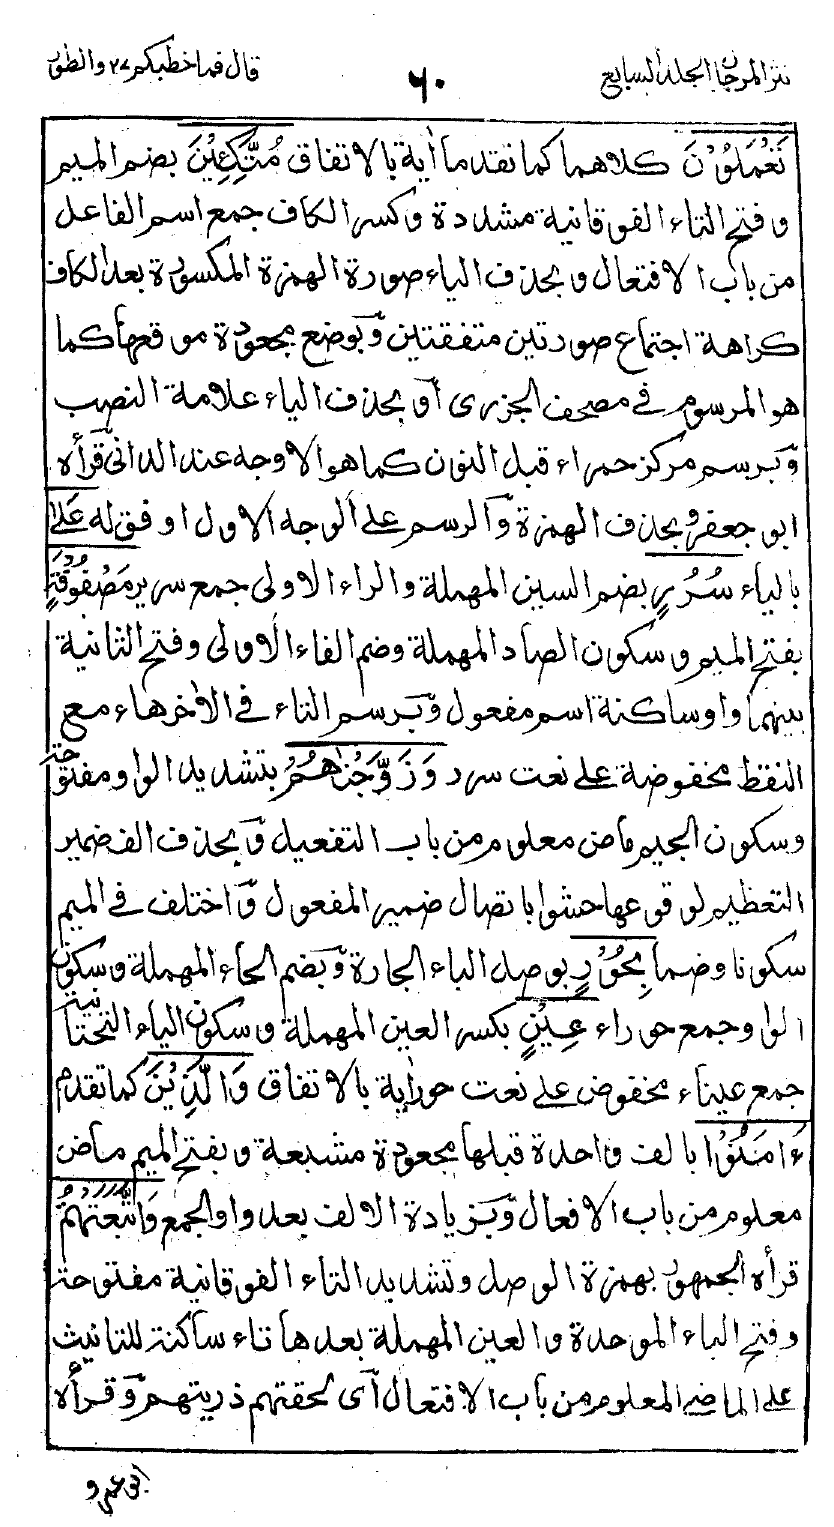 نثر المرجان المجلد السابع
٦٠
قال فما خطبكم ٢٧ والطور
تَعْمَلُوْنَ كلاهما كما تقدما اٰية بالاتفاق مُتَّكِئِيْنَ بضم الميم
وفتح التاء الفوقانية مشددة وكسر الكاف جمع اسم الفاعل
من باب الافتعال وبحذف الياء صورة الهمزة المكسورة بعد الكاف
كراهة اجتماع صورتين متفقتين وّبوضع مجعودة موقعها كما
هو المرسوم في مصحف الجزرى اَو بحذف الياء علامة النصب
وّبرسم مركز حمراء قبل النون كما هو الاوجه عند الدانى قرأه
ابو جعفر وبحذف الهمزة وّالرسم على الوجه الاول اوفق له عَلٰى
بالياء سُرُرٍ بضم السين المهملة والراء الاولى جمع سرير مَصْفُوْفَةٍ
بفتح الميم وسكون الصاد المهملة وضم الفاء الاولى وفتح الثانية
بينهما واو ساكنة اسم مفعول وّبرسم التاء في الاٰخر هاء مع
النقط مخفوضة على نعت سرر وَزَوَّجْنٰهُمْ بتشديد الواو مفتوحة
وسكون الجيم ماض معلوم من باب التفعيل وّبحذف الف ضمير
التعظيم لوقوعها حشوا باتصال ضمير المفعول وّاختلف في الميم
سكونا وضما بِحُوْرٍ بوصل الباء الجارة وّبضم الحاء المهملة وسكون
الواو جمع حوراء عِيْنٍ بكسر العين المهملة وسكون الياء التحتانية
جمع عيناء مخفوض على نعت حور اٰية بالاتفاق وَالَّذِيْنَ كما تقدم
ءَامَنُوْا بالف واحدة قبلها مجعودة مشبعة وبفتح الميم ماض
معلوم من باب الافعال وّبزيادة الالف بعد واو الجمع وَاتَّبَعَتْهُمْ
قرأه الجمهور بهمزة الوصل وتشديد التاء الفوقانية مفتوحة
وفتح الباء الموحدة والعين المهملة بعدها تاء ساكنة للتانيث
على الماضى المعلوم من باب الافتعال اَى لحقتهم ذريتهم وّقرأه
ابو عمرو